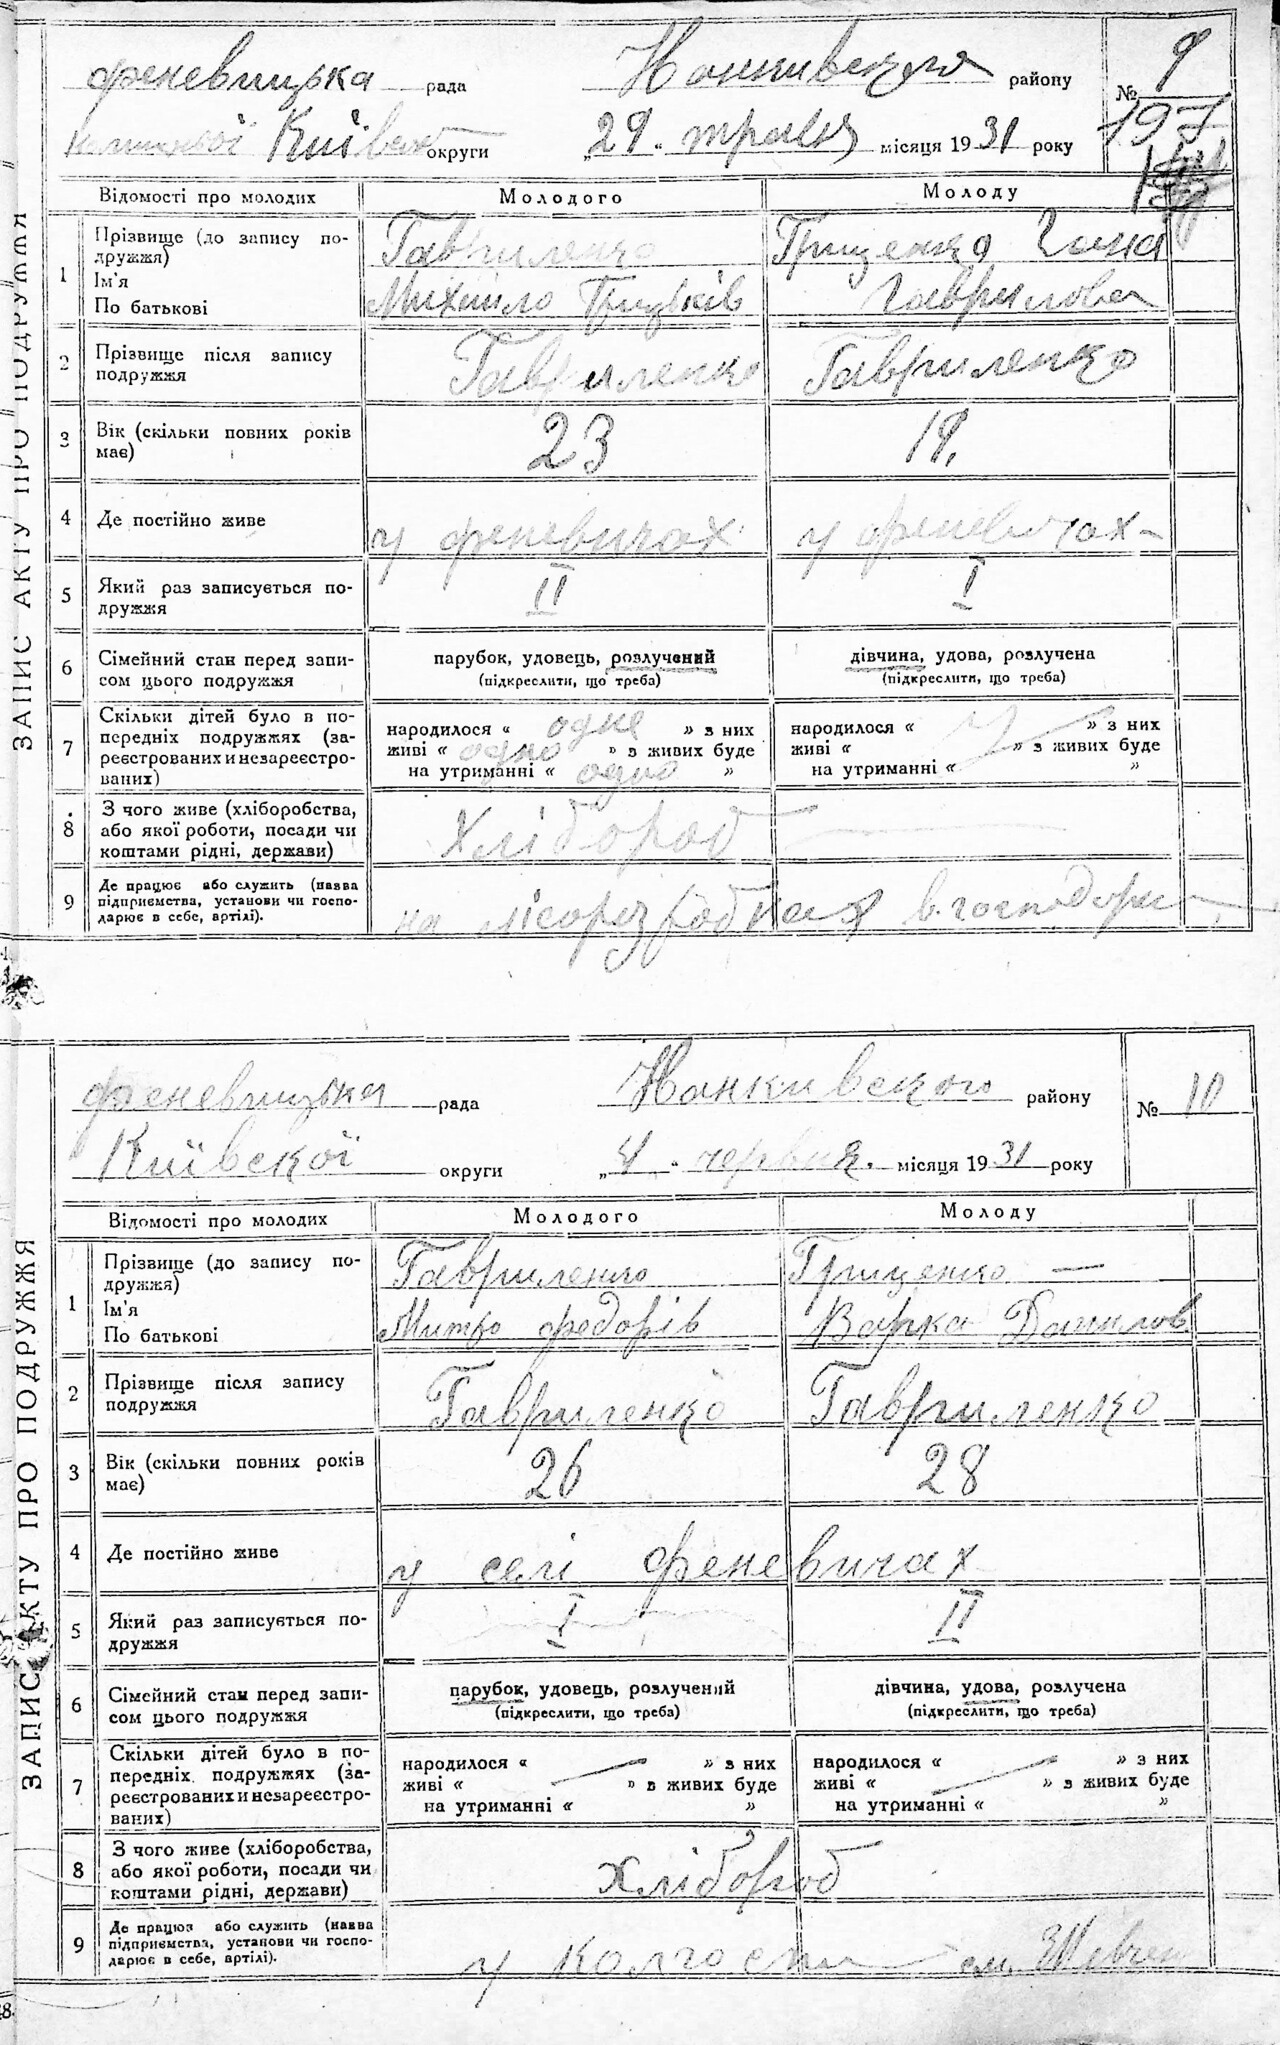 ЗАПИС АКТУ ПРО ПОДРУЖЖЯ
феневицька рада района № 9
Київськ округи „29“ травня місяця 1931 року 197
Відомості про молодих Молодого Молоду
1 Прізвище (до запису подружжя) Гавриленко Грищенко Гана
Ім'я
По батькові Михайло Грицьків Гаврилова
2 Прізвище після запису подружжя Гавриленко Гавриленко
3 Вік (скільки повних років має) 23 19.
4 Де постійно живе у феневичах у феневичах
5 Який раз записується подружжя II I
6 Сімейний стан перед записом цього подружжя парубок, удовець, розлучений дівчина, удова, розлучена
(підкреслити, що треба) (підкреслити, що треба)
7 Скільки дітей було в попередніх подружжях (зареєстрованих и незареєстрованих)
народилося « одне » з них народилося « » з них
живі « одно » з живих буде живі « » з живих буде
на утриманні « одно » на утриманні « »
8 З чого живе (хліборобства, або якої роботи, посади чи коштами рідні, держави) Хлібороб
9 Де працює або служить (назва підприємства, установи чи господарює в себе, артілі). на лісорозробках в господарс
ЗАПИС АКТУ ПРО ПОДРУЖЖЯ
феневицька рада району № 10
Київскої округи „4“ червня. місяця 1931 року
Відомості про молодих Молодого Молоду
1 Прізвище (до запису подружжя) Гавриленко Грищенко —
Ім'я
По батькові Митько федорів Варка Данилов
2 Прізвище після запису подружжя Гавриленко Гавриленко
3 Вік (скільки повних років має) 26 28
4 Де постійно живе у селі феневичах
5 Який раз записується подружжя I II
6 Сімейний стан перед записом цього подружжя парубок, удовець, розлучений дівчина, удова, розлучена
(підкреслити, що треба) (підкреслити, що треба)
7 Скільки дітей було в попередніх подружжях (зареєстрованих и незареєстрованих)
народилося « » з них народилося « » з них
живі « » в живих буде живі « » з живих буде
на утриманні « » на утриманні « »
8 З чого живе (хліборобства, або якої роботи, посади чи коштами рідні, держави) Хлібороб
9 Де працює або служить (назва підприємства, установи чи господарює в себе, артілі). у колгоспи ім. Шевчен